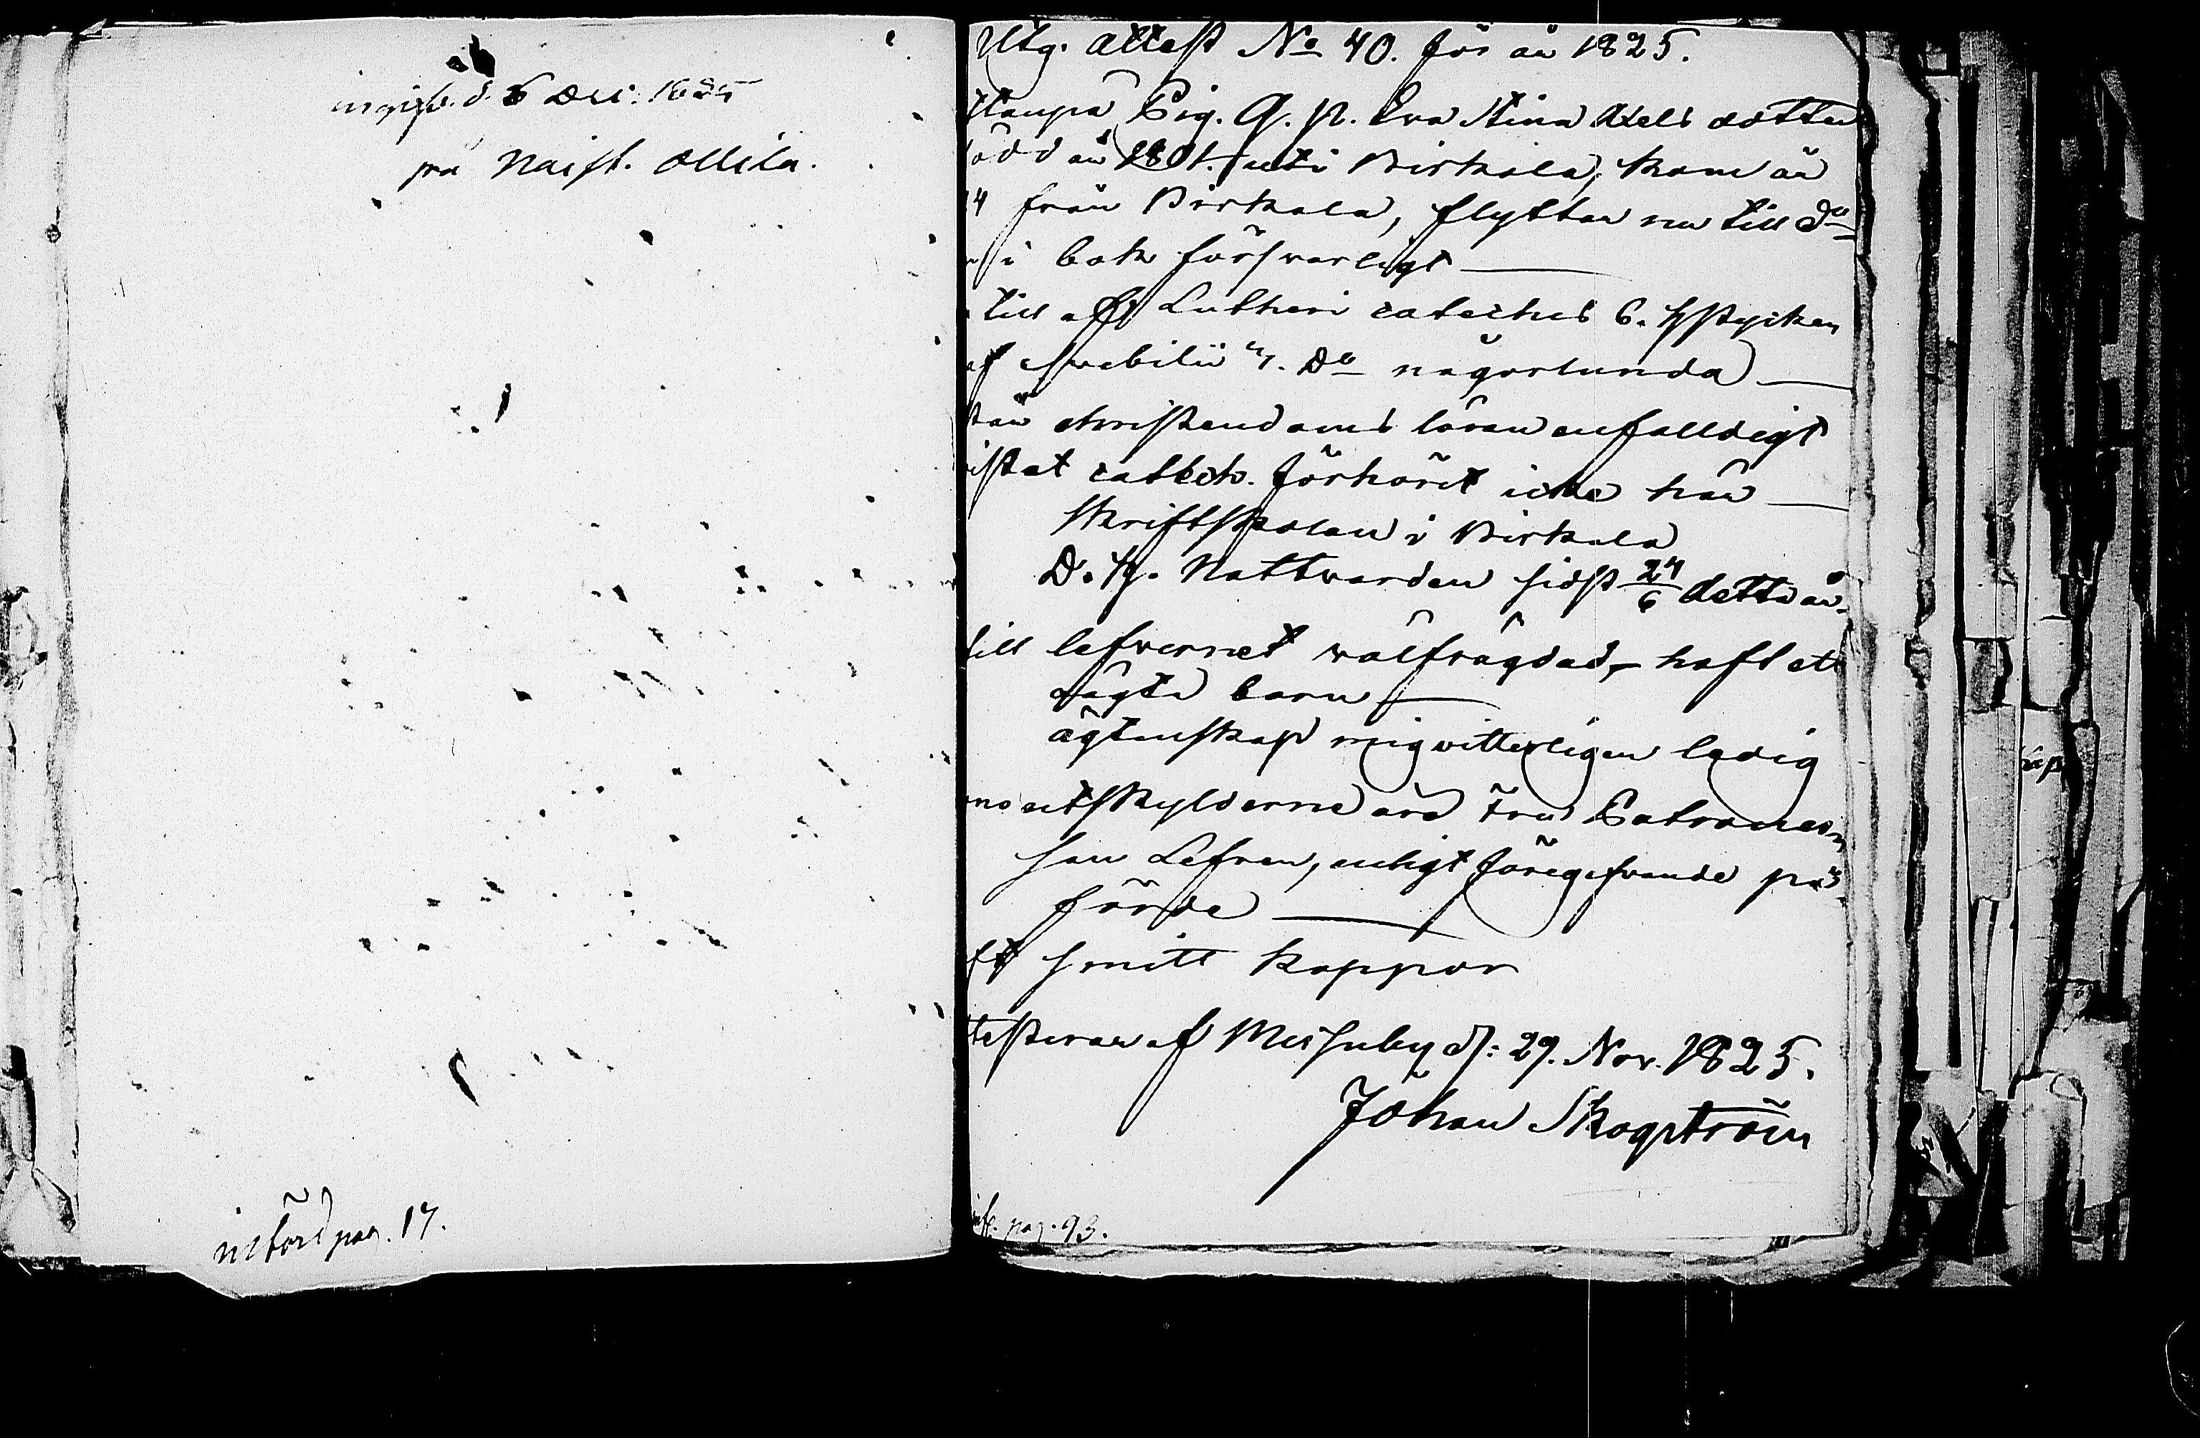 d. 6 Dec. 1825
på Naist. Ollila.
införd pag. 17.
Utg. attest No 40. för år 1825.
Pig. Q. p. Eva Stina Axels dotter
född år 1801. uti Birkala, kom år
4 från Birkala, flyttar nu till Do
i bok försvarligt
till af Lutheri cateches 6. Hstycken
af Svebilii Do någorlunda
christendoms läran enfalldigt
catech. förhöret icke här
skriftskolan i Birkala
D. H. Nattvarden sidst 24/6 detta år.
till lefvernet välfrägdad, haft ett
oägta barn
ägtenskap migvitterligen ledig
utskylderne äro Fru
Lefren, enligt föregifvande på-
förde
smitt koppor
af Messuby d: 29. Nov. 1825.
Johan Skogström
pag. 93.